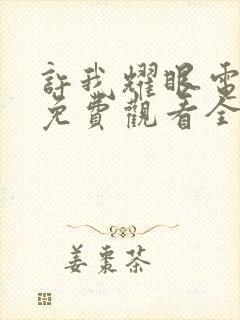 許我耀眼電
免費觀看全
姜棗茶